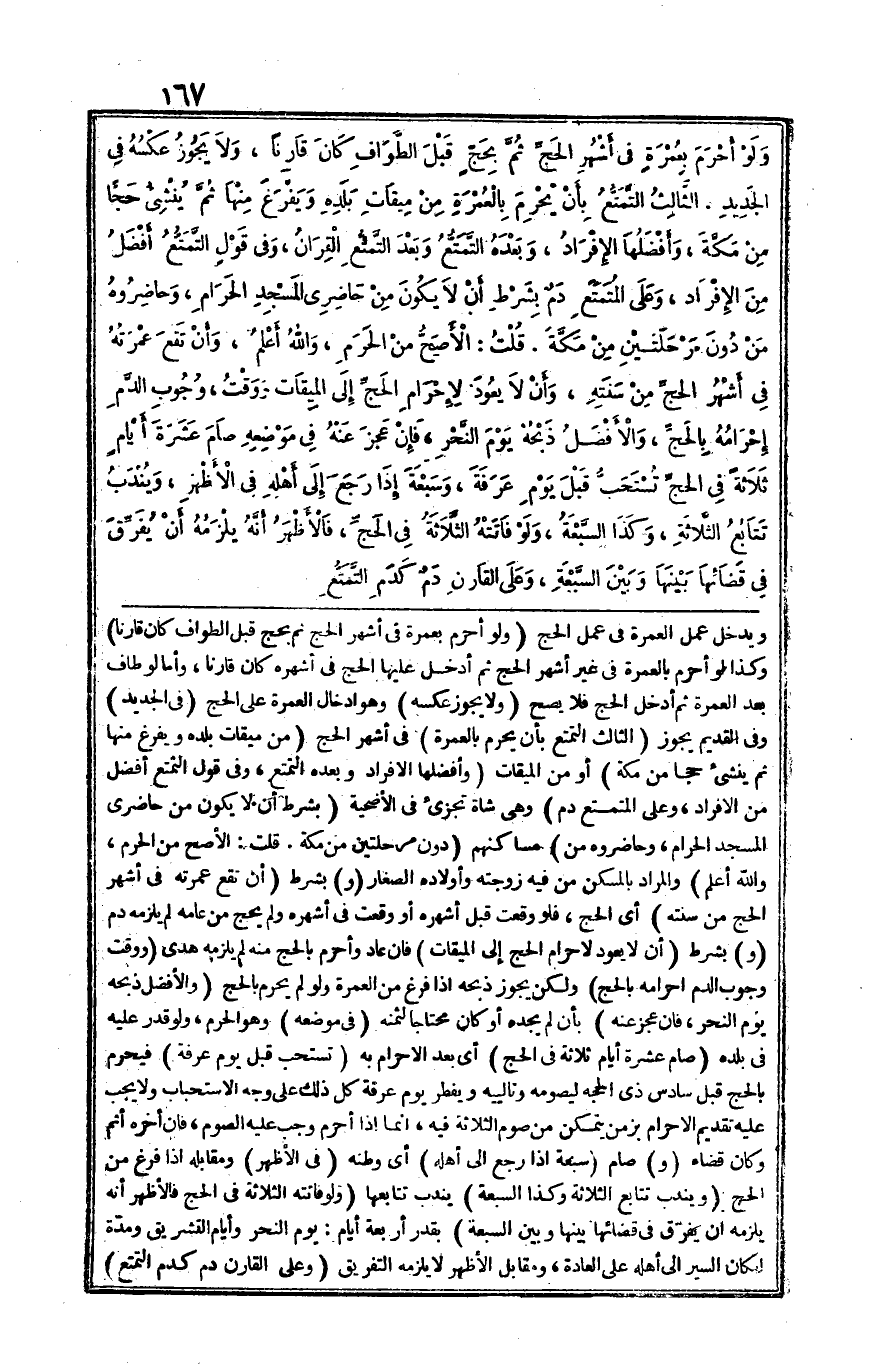 ١٦٧
وَلَوْ أَحْرَمَ بِعُمْرَةٍ فِى أَشْهُرِ الحَجِّ ثُمَّ بِحَجٍّ قَبْلَ الطَّوَافِ كَانَ قَارِنًا ، وَلاَ يَجُوزُ عَكْسُهُ فِى
الجَدِيدِ . الثَّالِثُ التَّمَتُّعُ بِأَنْ يُحْرِمَ بِالْعُمْرَةِ مِنْ مِيقَاتِ بَلَدِهِ وَيَفْرَغَ مِنْهَا ثُمَّ يُنْشِئَ حَجًّا
مِنْ مَكَّةَ ، وَأَفْضَلُهَا الإِفْرَادُ ، وَبَعْدَهُ التَّمَتُّعُ وَبَعْدَ التَّمَتُّعِ القِرَانُ ، وَفِى قَوْلٍ التَّمَتُّعُ أَفْضَلُ
مِنَ الإِفْرَادِ ، وَعَلَى المُتَمَتِّعِ دَمٌ بِشَرْطِ أَنْ لاَ يَكُونَ مِنْ حَاضِرِى المَسْجِدِ الحَرَامِ ، وَحَاضِرُوهُ
مَنْ دُونَ مَرْحَلَتَيْنِ مِنْ مَكَّةَ . قُلْتُ : الْأَصَحُّ مِنَ الحَرَمِ ، وَاللهُ أَعْلَمُ ، وَأَنْ تَقَعَ عُمْرَتُهُ
فِى أَشْهُرِ الحَجِّ مِنْ سَنَتِهِ ، وَأَنْ لاَ يَعُودَ لِإِحْرَامِ الحَجِّ إِلَى المِيقَاتِ وَوَقْتُ ، وُجُوبِ الدَّمِ
إِحْرَامُهُ بِالحَجِّ ، وَالْأَفْضَلُ ذَبْحُهُ يَوْمَ النَّحْرِ ، فَإِنْ عَجَزَ عَنْهُ فِى مَوْضِعِهِ صَامَ عَشَرَةَ أَيَّامٍ
ثَلَاثَةً فِى الحَجِّ تُسْتَحَبُّ قَبْلَ يَوْمِ عَرَفَةَ ، وَسَبْعَةً إِذَا رَجَعَ إِلَى أَهْلِهِ فِى الْأَظْهَرِ ، وَيُنْدَبُ
تَتَابُعُ الثَّلاَثَةِ ، وَكَذَا السَّبْعَةُ ، وَلَوْ فَاتَتْهُ الثَّلاَثَةُ فِى الحَجِّ ، فَالْأَظْهَرُ أَنَّهُ يَلْزَمُهُ أَنْ يُفَرِّقَ
فِى قَضَائِهَا بَيْنَهَا وَبَيْنَ السَّبْعَةِ ، وَعَلَى القَارِنِ دَمٌ كَدَمِ التَّمَتُّعِ
ويدخل عمل العمرة فى عمل الحج ( ولو أحرم بعمرة فى أشهر الحج ثم بحج قبل الطواف كان قارنا )
وكذا لو أحرم بالعمرة فى غير أشهر الحج ثم أدخل عليها الحج فى أشهره كان قارنا ، وأما لو طاف
بعد العمرة ثم أدخل الحج فلا يصح ( ولا يجوز عكسه ) وهو ادخال العمرة على الحج ( فى الجديد )
وفى القديم يجوز ( الثالث التمتع بأن يحرم بالعمرة ) فى أشهر الحج ( من ميقات بلده ويفرغ منها
ثم ينشئ حجا من مكة ) أو من الميقات ( وأفضلها الافراد وبعده التمتع ، وفى قول التمتع أفضل
من الافراد ، وعلى المتمتع دم ) وهى شاة تجزئ فى الأضحية ( بشرط أن لا يكون من حاضرى
المسجد الحرام ، وحاضروه من ) مساكنهم ( دون مرحلتين من مكة . قلت : الأصح من الحرم ،
والله أعلم ) والمراد بالمسكن من فيه زوجته وأولاده الصغار ( و ) بشرط ( أن تقع عمرته فى أشهر
الحج من سنته ) أى الحج ، فلو وقعت قبل أشهره أو وقعت فى أشهره ولم يحج من عامه لم يلزمه دم
( و ) بشرط ( أن لا يعود لاحرام الحج إلى الميقات ) فان عاد وأحرم بالحج منه لم يلزمه هدى ( ووقت
وجوب الدم احرامه بالحج ) ولكن يجوز ذبحه اذا فرغ من العمرة ولو لم يحرم بالحج ( والأفضل ذبحه
يوم النحر ، فان عجز عنه ) بأن لم يجده أو كان محتاجا لثمنه ( فى موضعه ) وهو الحرم ، ولو قدر عليه
فى بلده ( صام عشرة أيام ثلاثة فى الحج ) أى بعد الاحرام به ( تستحب قبل يوم عرفة ) فيحرم
بالحج قبل سادس ذى الحجه ليصومه وتاليه ويفطر يوم عرفة كل ذلك على وجه الاستحباب ولا يجب
عليه تقديم الاحرام بزمن يتمكن من صوم الثلاثة فيه ، انما اذا أحرم وجب عليه الصوم ، فان أخره أثم
وكان قضاء ( و ) صام ( سبعة اذا رجع الى أهله ) أى وطنه ( فى الأظهر ) ومقابله اذا فرغ من
الحج ( ويندب تتابع الثلاثة وكذا السبعة ) يندب تتابعها ( ولو فاتته الثلاثة فى الحج فالأظهر أنه
يلزمه ان يفرّق فى قضائها بينها وبين السبعة ) بقدر أربعة أيام : يوم النحر وأيام التشريق ومدّة
امكان السير الى أهله على العادة ، ومقابل الأظهر لا يلزمه التفريق ( وعلى القارن دم كدم التمتع )